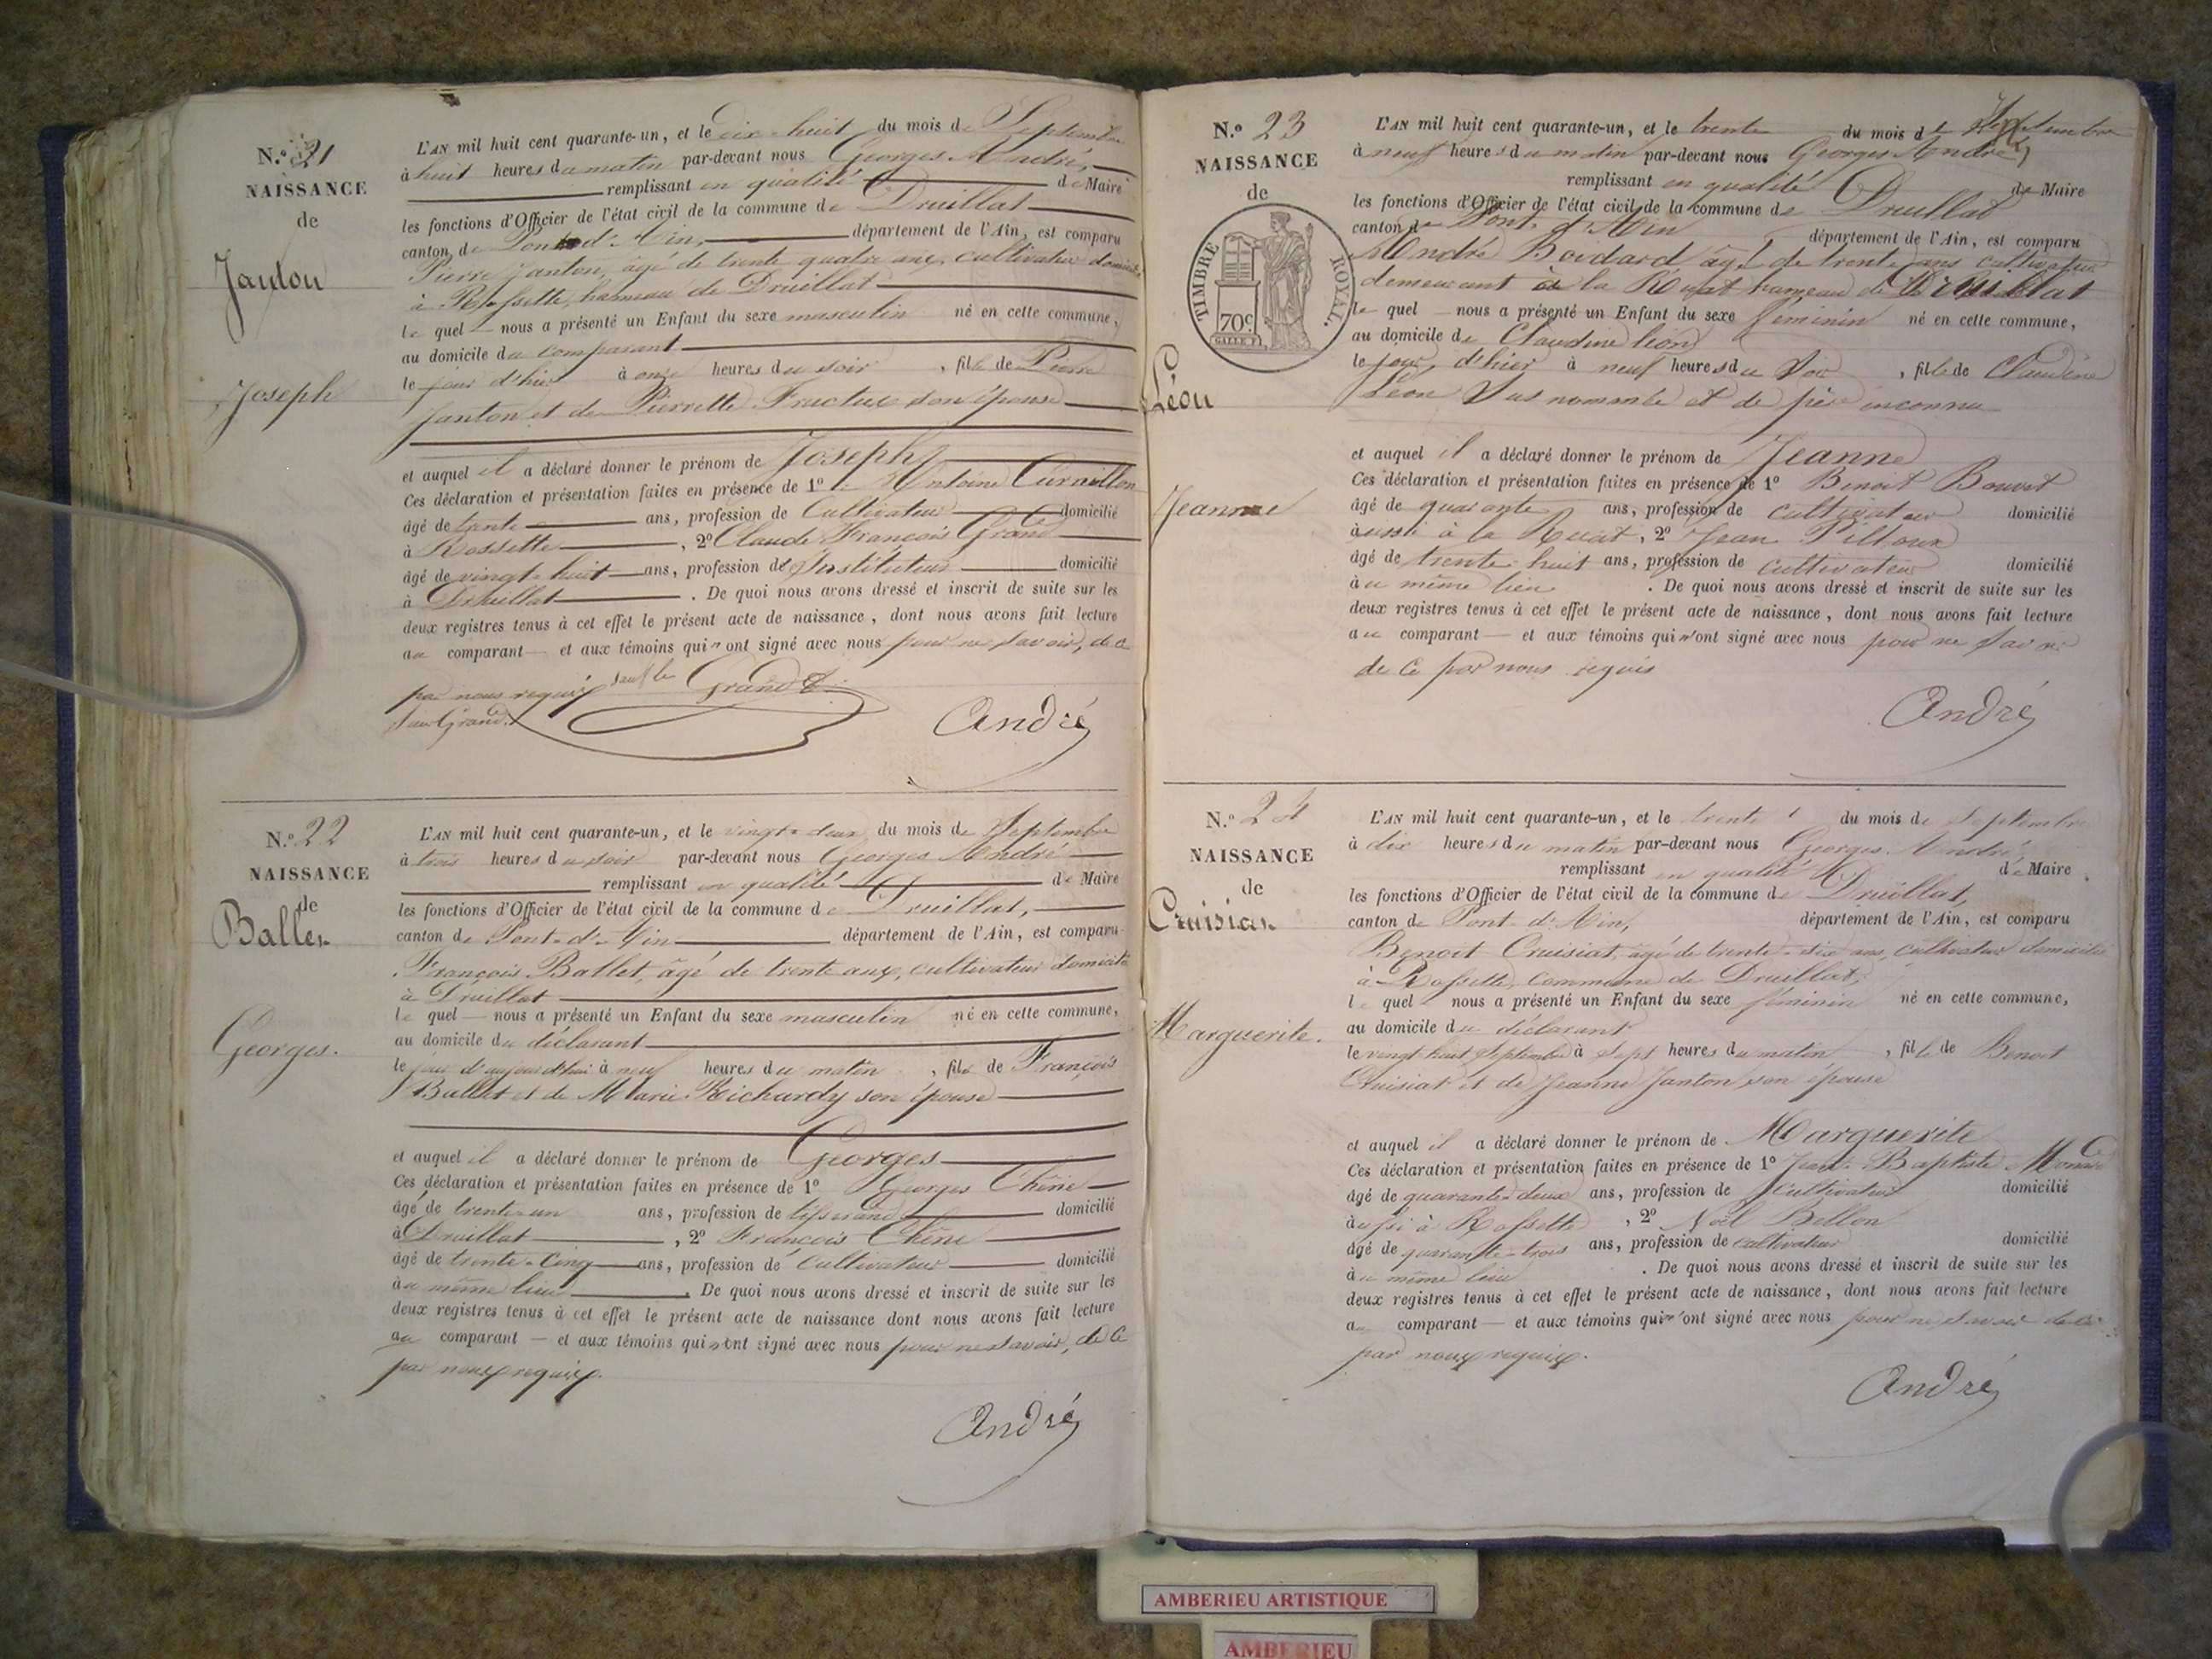 N.o 21
NAISSANCE
de
Janton
Joseph
L'AN mil huit cent quarante-un, et le dix-huit du mois de Septembre
à huit heures du matin par-devant nous Georges André,
remplissant en qualité de Maire
les fonctions d'Officier de l'état civil de la commune de Druillat
canton de Pont-d'Ain, département de l'Ain, est comparu
Pierre Janton, âgé de trente quatre ans, cultivateur domicilié
à Rossette, hameau de Druillat
le quel nous a présenté un Enfant du sexe masculin né en cette commune,
au domicile du comparant
le jour d'hier à onze heures du soir, fils de Pierre
Janton et de Pierrette Fructus son épouse
et auquel il a déclaré donner le prénom de Joseph
Ces déclaration et présentation faites en présence de 1o Antoine
âgé de ans, profession de Cultivateur domicilié
à Rossette, 2o Claude François Grand
âgé de vingt-huit ans, profession de Instituteur domicilié
à Druillat. De quoi nous avons dressé et inscrit de suite sur les
deux registres tenus à cet effet le présent acte de naissance, dont nous avons fait lecture
au comparant et aux témoins qui n'ont signé avec nous pour ne savoir, de ce
par nous requis sauf le Grand
Sauf Grand.
André
N.o 22
NAISSANCE
de
Ballet
Georges.
L'AN mil huit cent quarante-un, et le vingt-deux du mois de Septembre
à trois heures du soir par-devant nous Georges André
remplissant en qualité de Maire
les fonctions d'Officier de l'état civil de la commune de Druillat,
canton de Pont-d'Ain département de l'Ain, est comparu
François Ballet, âgé de trente ans, cultivateur domicilié
à Druillat
le quel nous a présenté un Enfant du sexe masculin né en cette commune,
au domicile du déclarant
le jour d'aujourd'hui à neuf heures du matin, fils de François
Ballet et de Marie Richardy son épouse
et auquel il a déclaré donner le prénom de Georges
Ces déclaration et présentation faites en présence de 1o Georges Chêne
âgé de trente-un ans, profession de tisserand domicilié
à Druillat, 2o François Chêne
âgé de trente-cinq ans, profession de Cultivateur domicilié
au même lieu. De quoi nous avons dressé et inscrit de suite sur les
deux registres tenus à cet effet le présent acte de naissance dont nous avons fait lecture
au comparant et aux témoins qui n'ont signé avec nous pour ne savoir, de ce
par nous requis.
André
N.o 23
NAISSANCE
de
TIMBRE ROYAL.
70c
Léon
Jeanne
L'AN mil huit cent quarante-un, et le trente du mois de Septembre
à neuf heures du matin par-devant nous Georges André,
remplissant en qualité de Maire
les fonctions d'Officier de l'état civil de la commune de Druillat
canton de Pont d'Ain département de l'Ain, est comparu
André Boidard âgé de trente ans cultivateur
demeurant à la Ruat hameau de Druillat
le quel nous a présenté un Enfant du sexe féminin né en cette commune,
au domicile de Claudine Léon
le jour d'hier à neuf heures du soir, fille de Claudine
Léon sus nommée et de père inconnu
et auquel il a déclaré donner le prénom de Jeanne
Ces déclaration et présentation faites en présence de 1o Benoit Bouvet
âgé de quarante ans, profession de cultivateur domicilié
aussi à la Ruat, 2o Jean Pilloux
âgé de trente huit ans, profession de cultivateur domicilié
au même lieu. De quoi nous avons dressé et inscrit de suite sur les
deux registres tenus à cet effet le présent acte de naissance, dont nous avons fait lecture
au comparant et aux témoins qui n'ont signé avec nous pour ne savoir
de ce par nous requis
André
N.o 24
NAISSANCE
de
Cruisiat
Marguerite.
L'AN mil huit cent quarante-un, et le trente du mois de Septembre
à dix heures du matin par-devant nous Georges André,
remplissant en qualité de Maire
les fonctions d'Officier de l'état civil de la commune de Druillat,
canton de Pont-d'Ain, département de l'Ain, est comparu
Benoit Cruisiat, âgé de trente-six ans, cultivateur domicilié
à Rossette, commune de Druillat,
le quel nous a présenté un Enfant du sexe féminin né en cette commune,
au domicile du déclarant
le vingt huit Septembre à sept heures du matin, fille de Benoit
Cruisiat et de Jeanne Janton son épouse
et auquel il a déclaré donner le prénom de Marguerite
Ces déclaration et présentation faites en présence de 1o Jean-Baptiste
âgé de quarante-deux ans, profession de Cultivateur domicilié
aussi à Rossette, 2o Noël Bellon
âgé de quarante-trois ans, profession de cultivateur domicilié
au même lieu. De quoi nous avons dressé et inscrit de suite sur les
deux registres tenus à cet effet le présent acte de naissance, dont nous avons fait lecture
au comparant et aux témoins qui n'ont signé avec nous pour ne savoir de ce
par nous requis.
André
AMBERIEU ARTISTIQUE
AMBERIEU